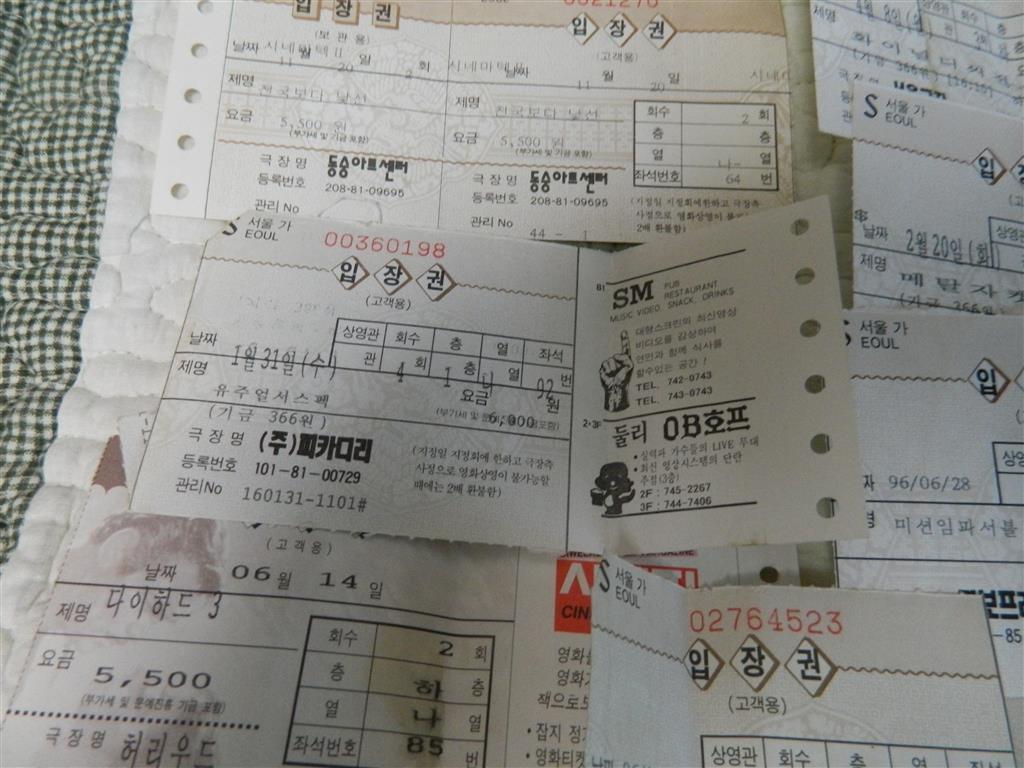 입장권
(보관용)
날짜 시네마텍Ⅱ
11월 20일 2회
제명 천국보다 낯선
요금 5,500 원
(부가세 및 기금 포함)
극장명 동숭아트센터
등록번호 208-81-09695
관리 No
입장권
(고객용)
시네마텍Ⅱ 날짜
11월 20일
제명 천국보다 낯선
요금 5,500 원
(부가세 및 기금 포함)
회수 2 회
층 층
열 나- 열
좌석번호 64 번
극장명 동숭아트센터
등록번호 208-81-09695
관리 No 44 - 1
(지정일 지정회에한하고 극장측
사정으로 영화상영이 불가
2배 환불함)
제명
S 서울 가
EOUL
입
날짜 2월20일(화)
제명 메탈자켓
(기금 366원
S 서울 가
EOUL
00360198
입장권
(고객용)
상영관 회수 층 열 좌석
날짜 1월31일(수) 관 4 회 1 층 열 92 번
제명 유주얼서스펙
(기금 366원)
요금 6,000 원
극장명 (주)피카디리
등록번호 101-81-00729
관리No 160131-1101#
(지정일 지정회에 한하고 극장측
사정으로 영화상영이 불가능할
때에는 2배 환불함)
B1 SM PUB
RESTAURANT
MUSIC VIDEO, SNACK, DRINKS
대형스크린의 최신영상
비디오를 감상하며
연인과 함께 식사를
할수있는 공간!
TEL. 742-0743
TEL. 743-0743
2·3F 둘리 OB호프
• 실력파 가수들의 LIVE 무대
• 최신 영상시스템의 단란
주점(3층)
2F : 745-2267
3F : 744-7406
S 서울 가
EOUL
입
96/06/28
미션임파서블
(고객용)
날짜 06월 14일
제명 다이하드 3
요금 5,500
(부가세 및 문예진흥 기금 포함)
극장명 허리우드
회수 2 회
층 하 층
열 나 열
좌석번호 85 번
CIN
영화
• 잡지 정
• 영화티켓
S 서울 가
EOUL
02764523
입장권
(고객용)
상영관 회수 층 열 좌석